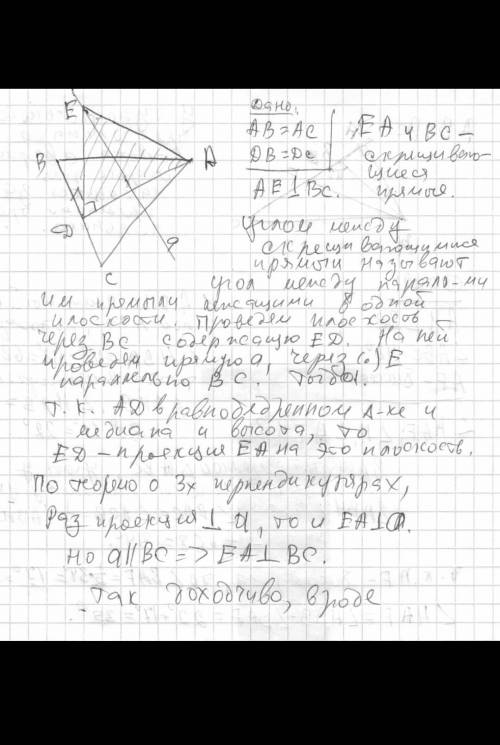 E
B
A
D
C
a
Дано:
AB = AC
DB = DC
AE ⊥ BC.
EA и BC –
скрещиваю-
щиеся
прямые.
Углом между
скрещивающимися
прямыми называют
угол между паралл-ми
им прямыми лежащими в одной
плоскости. Проведем плоскость –
через BC содержащую ED. На ней
проведем прямую a, через (·) E
параллельно BC.
т.к. AD в равнобедренном Δ-ке и
медиана и высота, то
ED – проекция EA на это плоскость.
По теореме о 3х перпендикулярах,
Раз проекция ⊥ a, то и EA ⊥ a.
но a || BC => EA ⊥ BC.
Так доходчиво, вроде